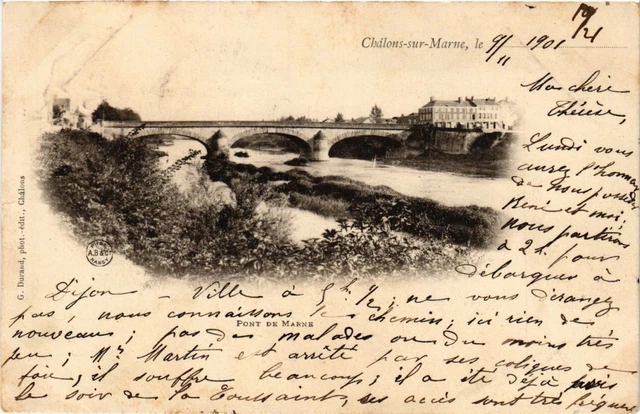 Châlons-sur-Marne, le 9/11 1901
Ma chère
Thérèse,
Lundi vous
aurez l'honneur
de nous posséder
René et moi;
nous partons
à 2h pour
débarquer à
Dijon - Ville à 5h 1/2; ne vous dérangez
pas, nous connaissons le chemin; ici rien de
nouveau; pas de malades ou du moins très
peu; Mr Martin est arrêté par ses coliques de
foie; il souffre beaucoup; il a été déjà pris
le soir de la Toussaint, ses accès sont très
PONT DE MARNE
G. Durand, phot.-édit., Châlons
A.B.&C
NANCY